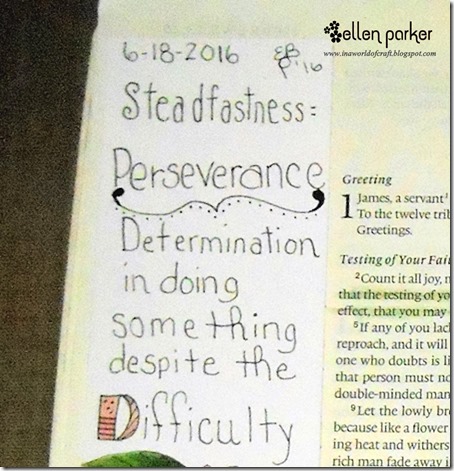 ellen parker
www.inaworldofcraft.blogspot.com
6-18-2016
'16
Steadfastness:
Perseverance
Determination
in doing
something
despite the
Difficulty
Greeting
1 James, a servant
To the twelve
Greetings.
Testing of Your
2 Count it all joy,
that the testing of
effect, that you may
5 If any of you
reproach, and it will
one who doubts is
that person must
double-minded
9 Let the lowly
because like a flower
ing heat and withers
rich man fade away